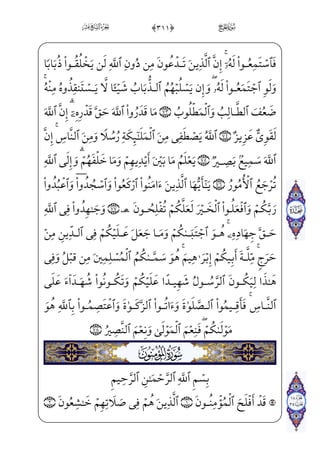 ﴿٣١١﴾
فَٱسْتَمِعُوا۟ لَهُۥٓ ۚ إِنَّ ٱلَّذِينَ تَدْعُونَ مِن دُونِ ٱللَّهِ لَن يَخْلُقُوا۟ ذُبَابًا
وَلَوِ ٱجْتَمَعُوا۟ لَهُۥ ۖ وَإِن يَسْلُبْهُمُ ٱلذُّبَابُ شَيْـًٔا لَّا يَسْتَنقِذُوهُ مِنْهُ ۚ
ضَعُفَ ٱلطَّالِبُ وَٱلْمَطْلُوبُ ۝ مَا قَدَرُوا۟ ٱللَّهَ حَقَّ قَدْرِهِۦٓ ۗ إِنَّ ٱللَّهَ
لَقَوِىٌّ عَزِيزٌ ۝ ٱللَّهُ يَصْطَفِى مِنَ ٱلْمَلَـٰٓئِكَةِ رُسُلًا وَمِنَ ٱلنَّاسِ ۚ إِنَّ
ٱللَّهَ سَمِيعٌۢ بَصِيرٌ ۝ يَعْلَمُ مَا بَيْنَ أَيْدِيهِمْ وَمَا خَلْفَهُمْ ۗ وَإِلَى ٱللَّهِ
تُرْجَعُ ٱلْأُمُورُ ۝ يَـٰٓأَيُّهَا ٱلَّذِينَ ءَامَنُوا۟ ٱرْكَعُوا۟ وَٱسْجُدُوا۟ وَٱعْبُدُوا۟
رَبَّكُمْ وَٱفْعَلُوا۟ ٱلْخَيْرَ لَعَلَّكُمْ تُفْلِحُونَ ۝ وَجَـٰهِدُوا۟ فِى ٱللَّهِ
حَقَّ جِهَادِهِۦ ۚ هُوَ ٱجْتَبَىٰكُمْ وَمَا جَعَلَ عَلَيْكُمْ فِى ٱلدِّينِ مِنْ
حَرَجٍ ۚ مِّلَّةَ أَبِيكُمْ إِبْرَٰهِيمَ ۚ هُوَ سَمَّىٰكُمُ ٱلْمُسْلِمِينَ مِن قَبْلُ وَفِى
هَـٰذَا لِيَكُونَ ٱلرَّسُولُ شَهِيدًا عَلَيْكُمْ وَتَكُونُوا۟ شُهَدَآءَ عَلَى
ٱلنَّاسِ ۚ فَأَقِيمُوا۟ ٱلصَّلَوٰةَ وَءَاتُوا۟ ٱلزَّكَوٰةَ وَٱعْتَصِمُوا۟ بِٱللَّهِ هُوَ
مَوْلَىٰكُمْ ۖ فَنِعْمَ ٱلْمَوْلَىٰ وَنِعْمَ ٱلنَّصِيرُ ۝
سُورَةُ المُؤْمِنُونَ
بِسْمِ ٱللَّهِ ٱلرَّحْمَـٰنِ ٱلرَّحِيمِ
قَدْ أَفْلَحَ ٱلْمُؤْمِنُونَ ۝ ٱلَّذِينَ هُمْ فِى صَلَاتِهِمْ خَـٰشِعُونَ ۝